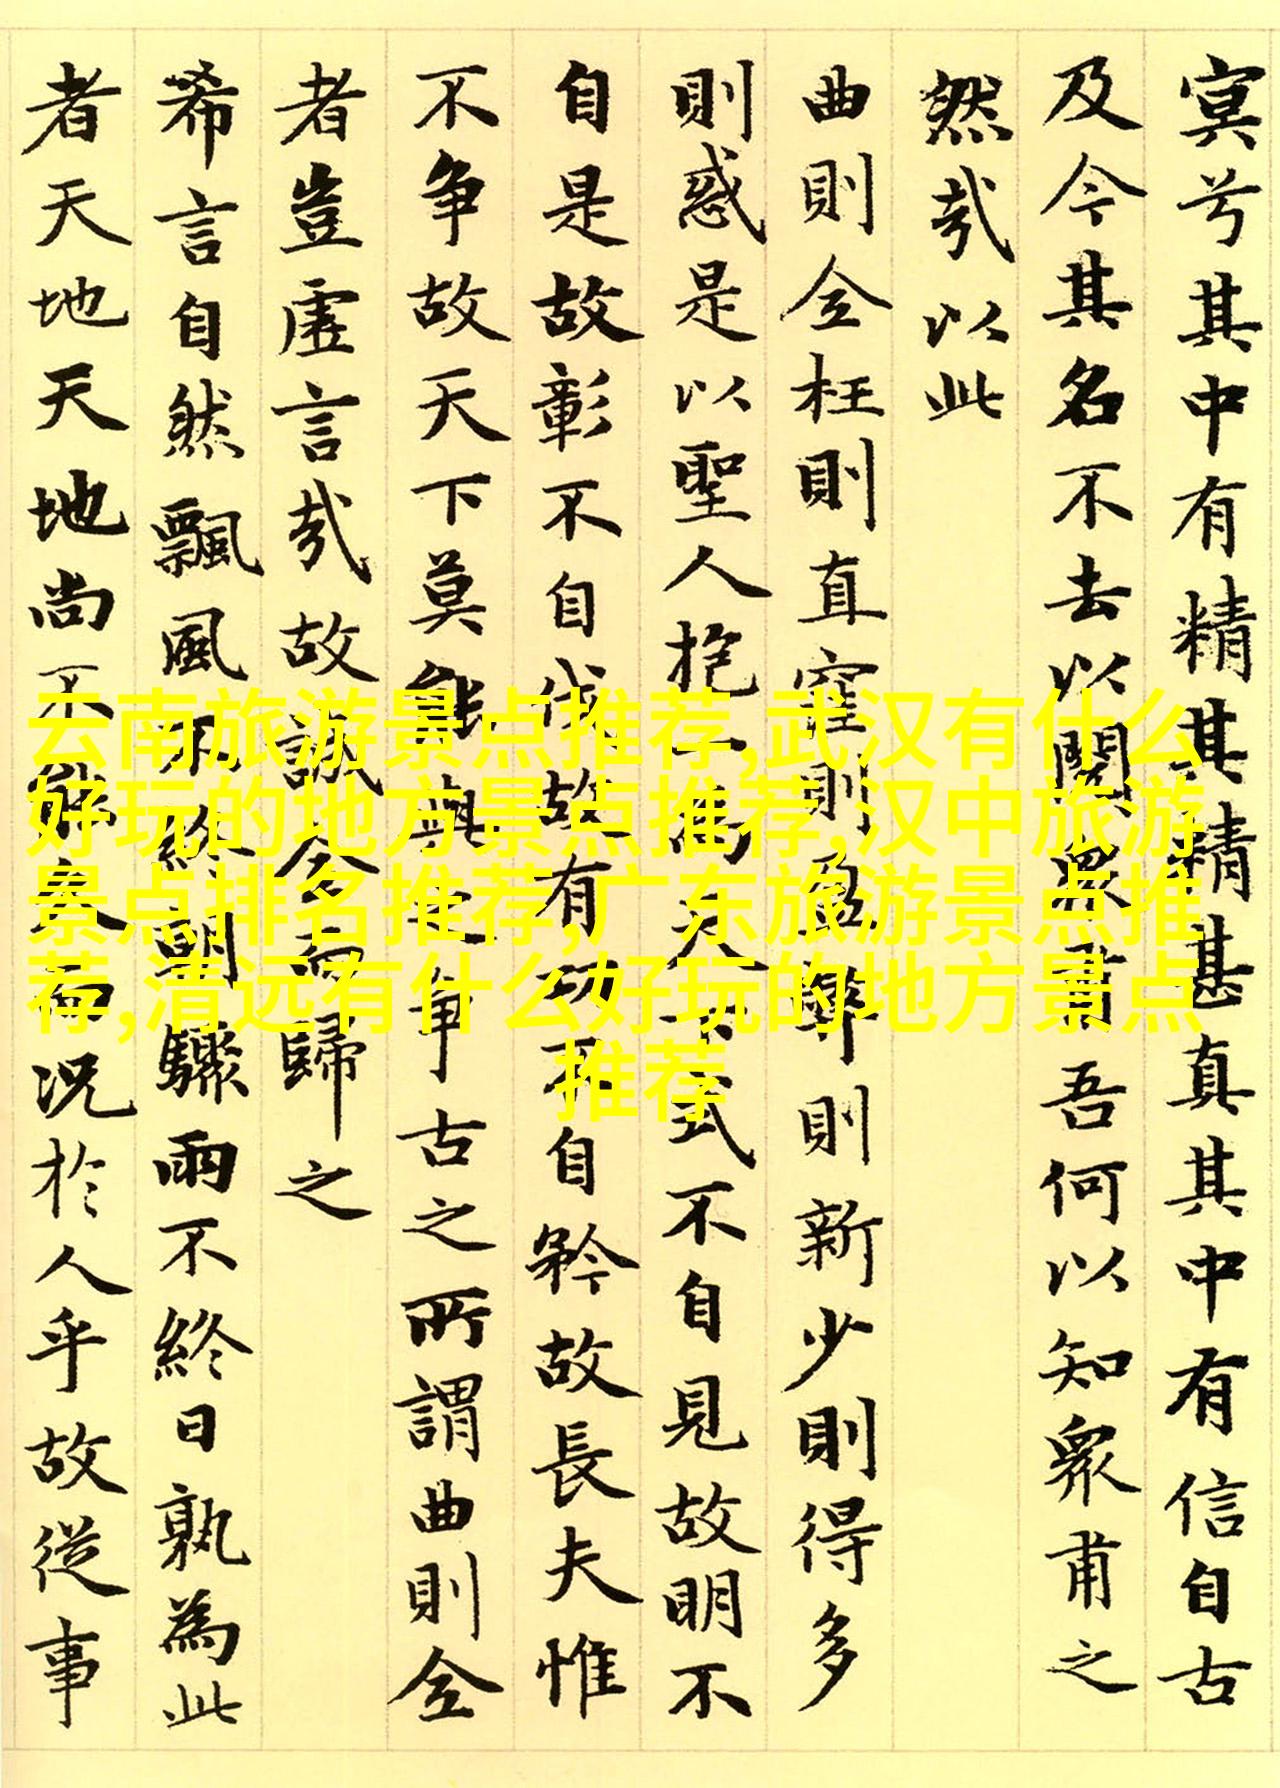 冥兮其中有精其精甚真其中有信自古
及今其名不去以閱衆甫吾何以知衆甫之
然哉以此
曲則全枉則直窪則盈弊則新少則得多
則惑是以聖人抱一為天下式不自見故明不
自是故彰不自伐故有功不自矜故長夫惟
不争故天下莫能與之争古之所謂曲則全
者豈虛言哉故誠全而歸之
希言自然飄風不終朝驟雨不終日孰為此
者天地天地尚不能久而况於人乎故從事
云南旅游景点推荐,武汉有什么
好玩的地方景点推荐,汉中旅游
景点排名推荐,广东旅游景点推
荐,清远有什么好玩的地方景点
推荐